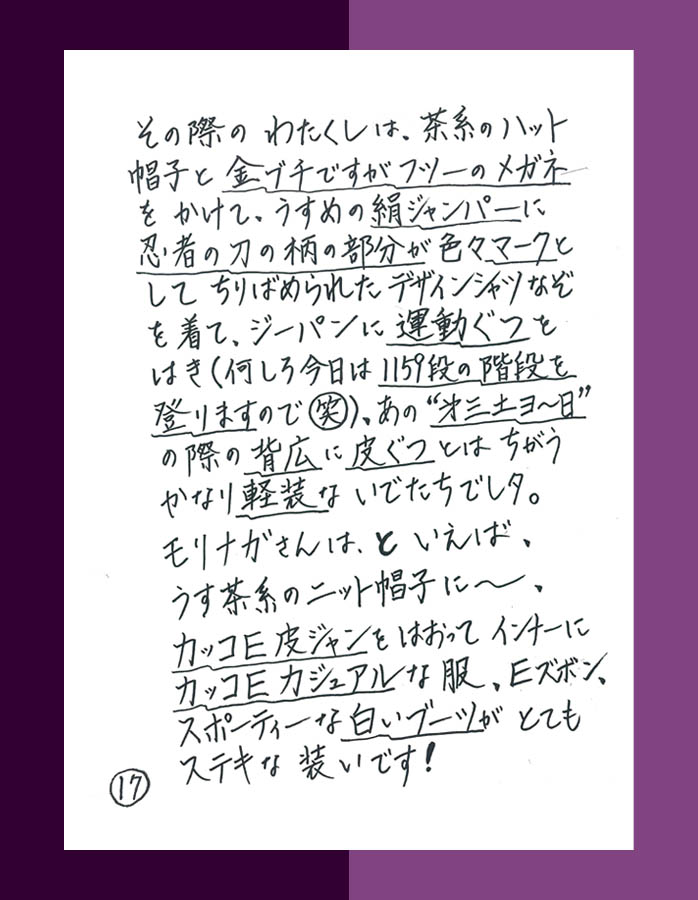 その際の わたくしは、茶系のハット
帽子と 金ブチですがフツーのメガネ
を かけて、うすめの絹ジャンパーに
忍者の刀の柄の部分が色々マークと
して ちりばめられたデザインシャツなぞ
を着て、ジーパンに 運動ぐつを
はき(何しろ今日は1159段の階段を
登りますので㊗笑)、あの“オ三土ヨ〜日”
の際の 背広に 皮ぐつとは ちがう
かなり軽装な いでたちでしタ。
モリナガさんは、と いえば、
うす茶系のニット帽子に〜、
カッコE 皮ジャンを はおって インナーに
カッコE カジュアルな 服、Eズボン、
スポーティーな白いブーツが とても
ステキな 装いです!
17